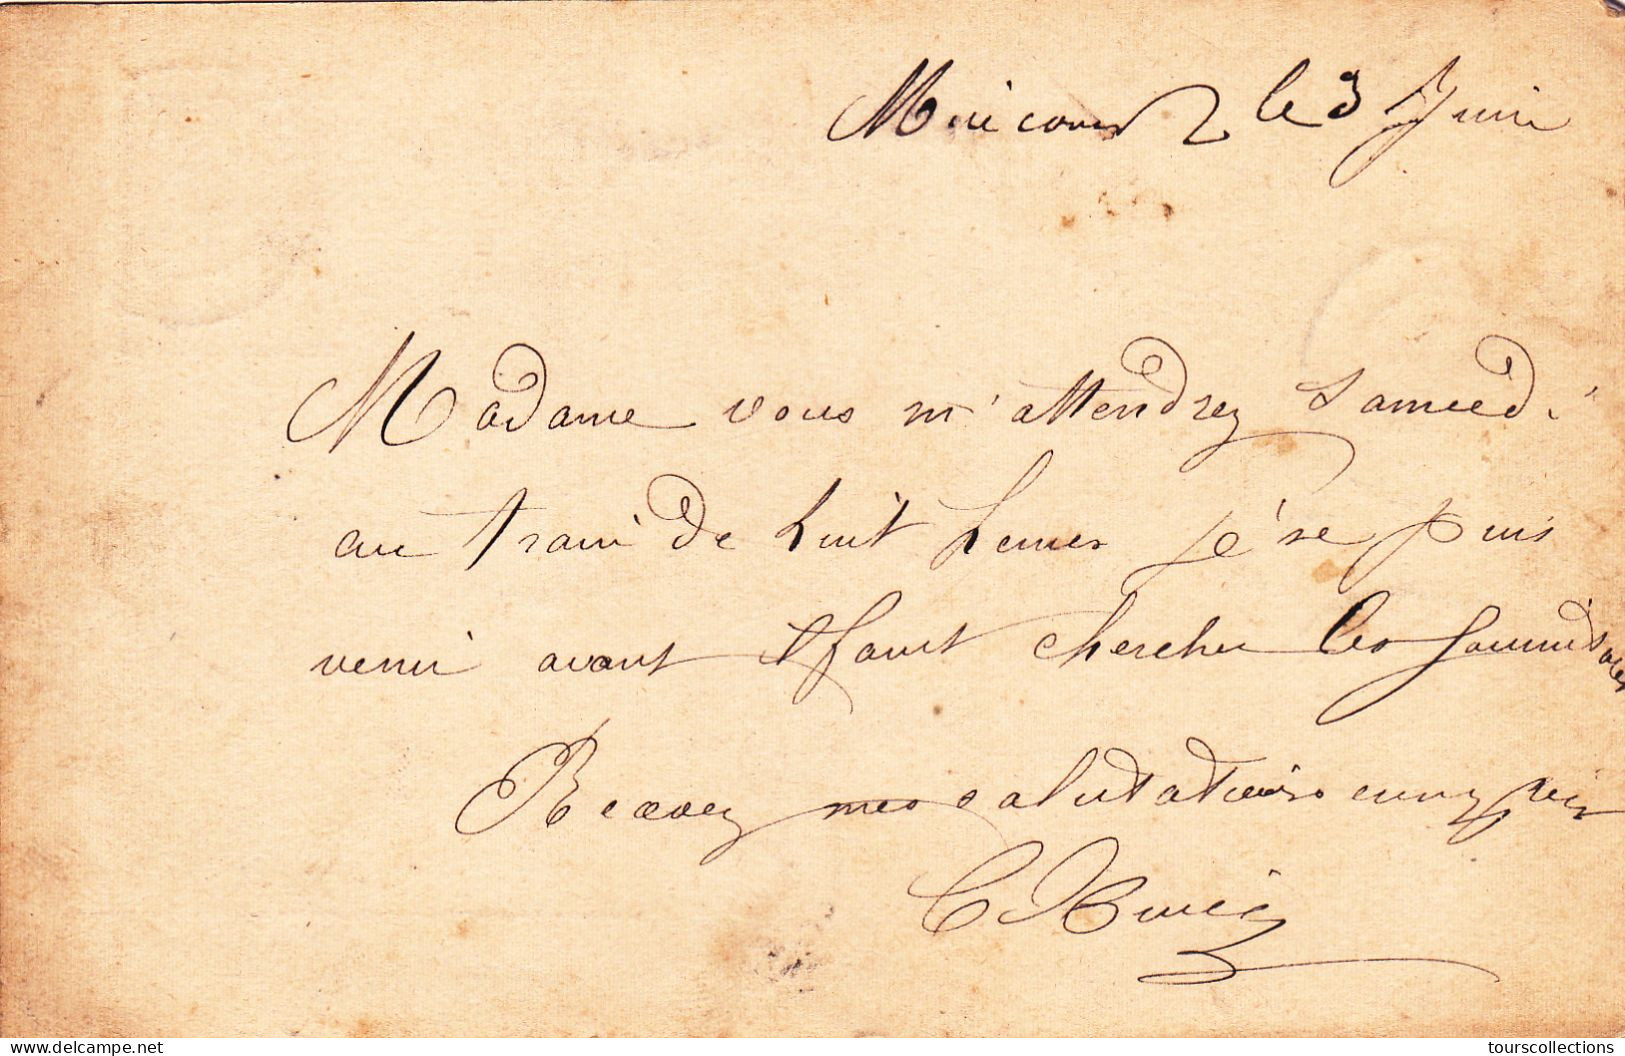 Mirecourt le 3 Juin
Madame vous m'attendrez Samedi
au train de huit heures je ne puis
venir avant il faut chercher les
Recevez mes salutations
C
www.delcampe.net
tourscollections